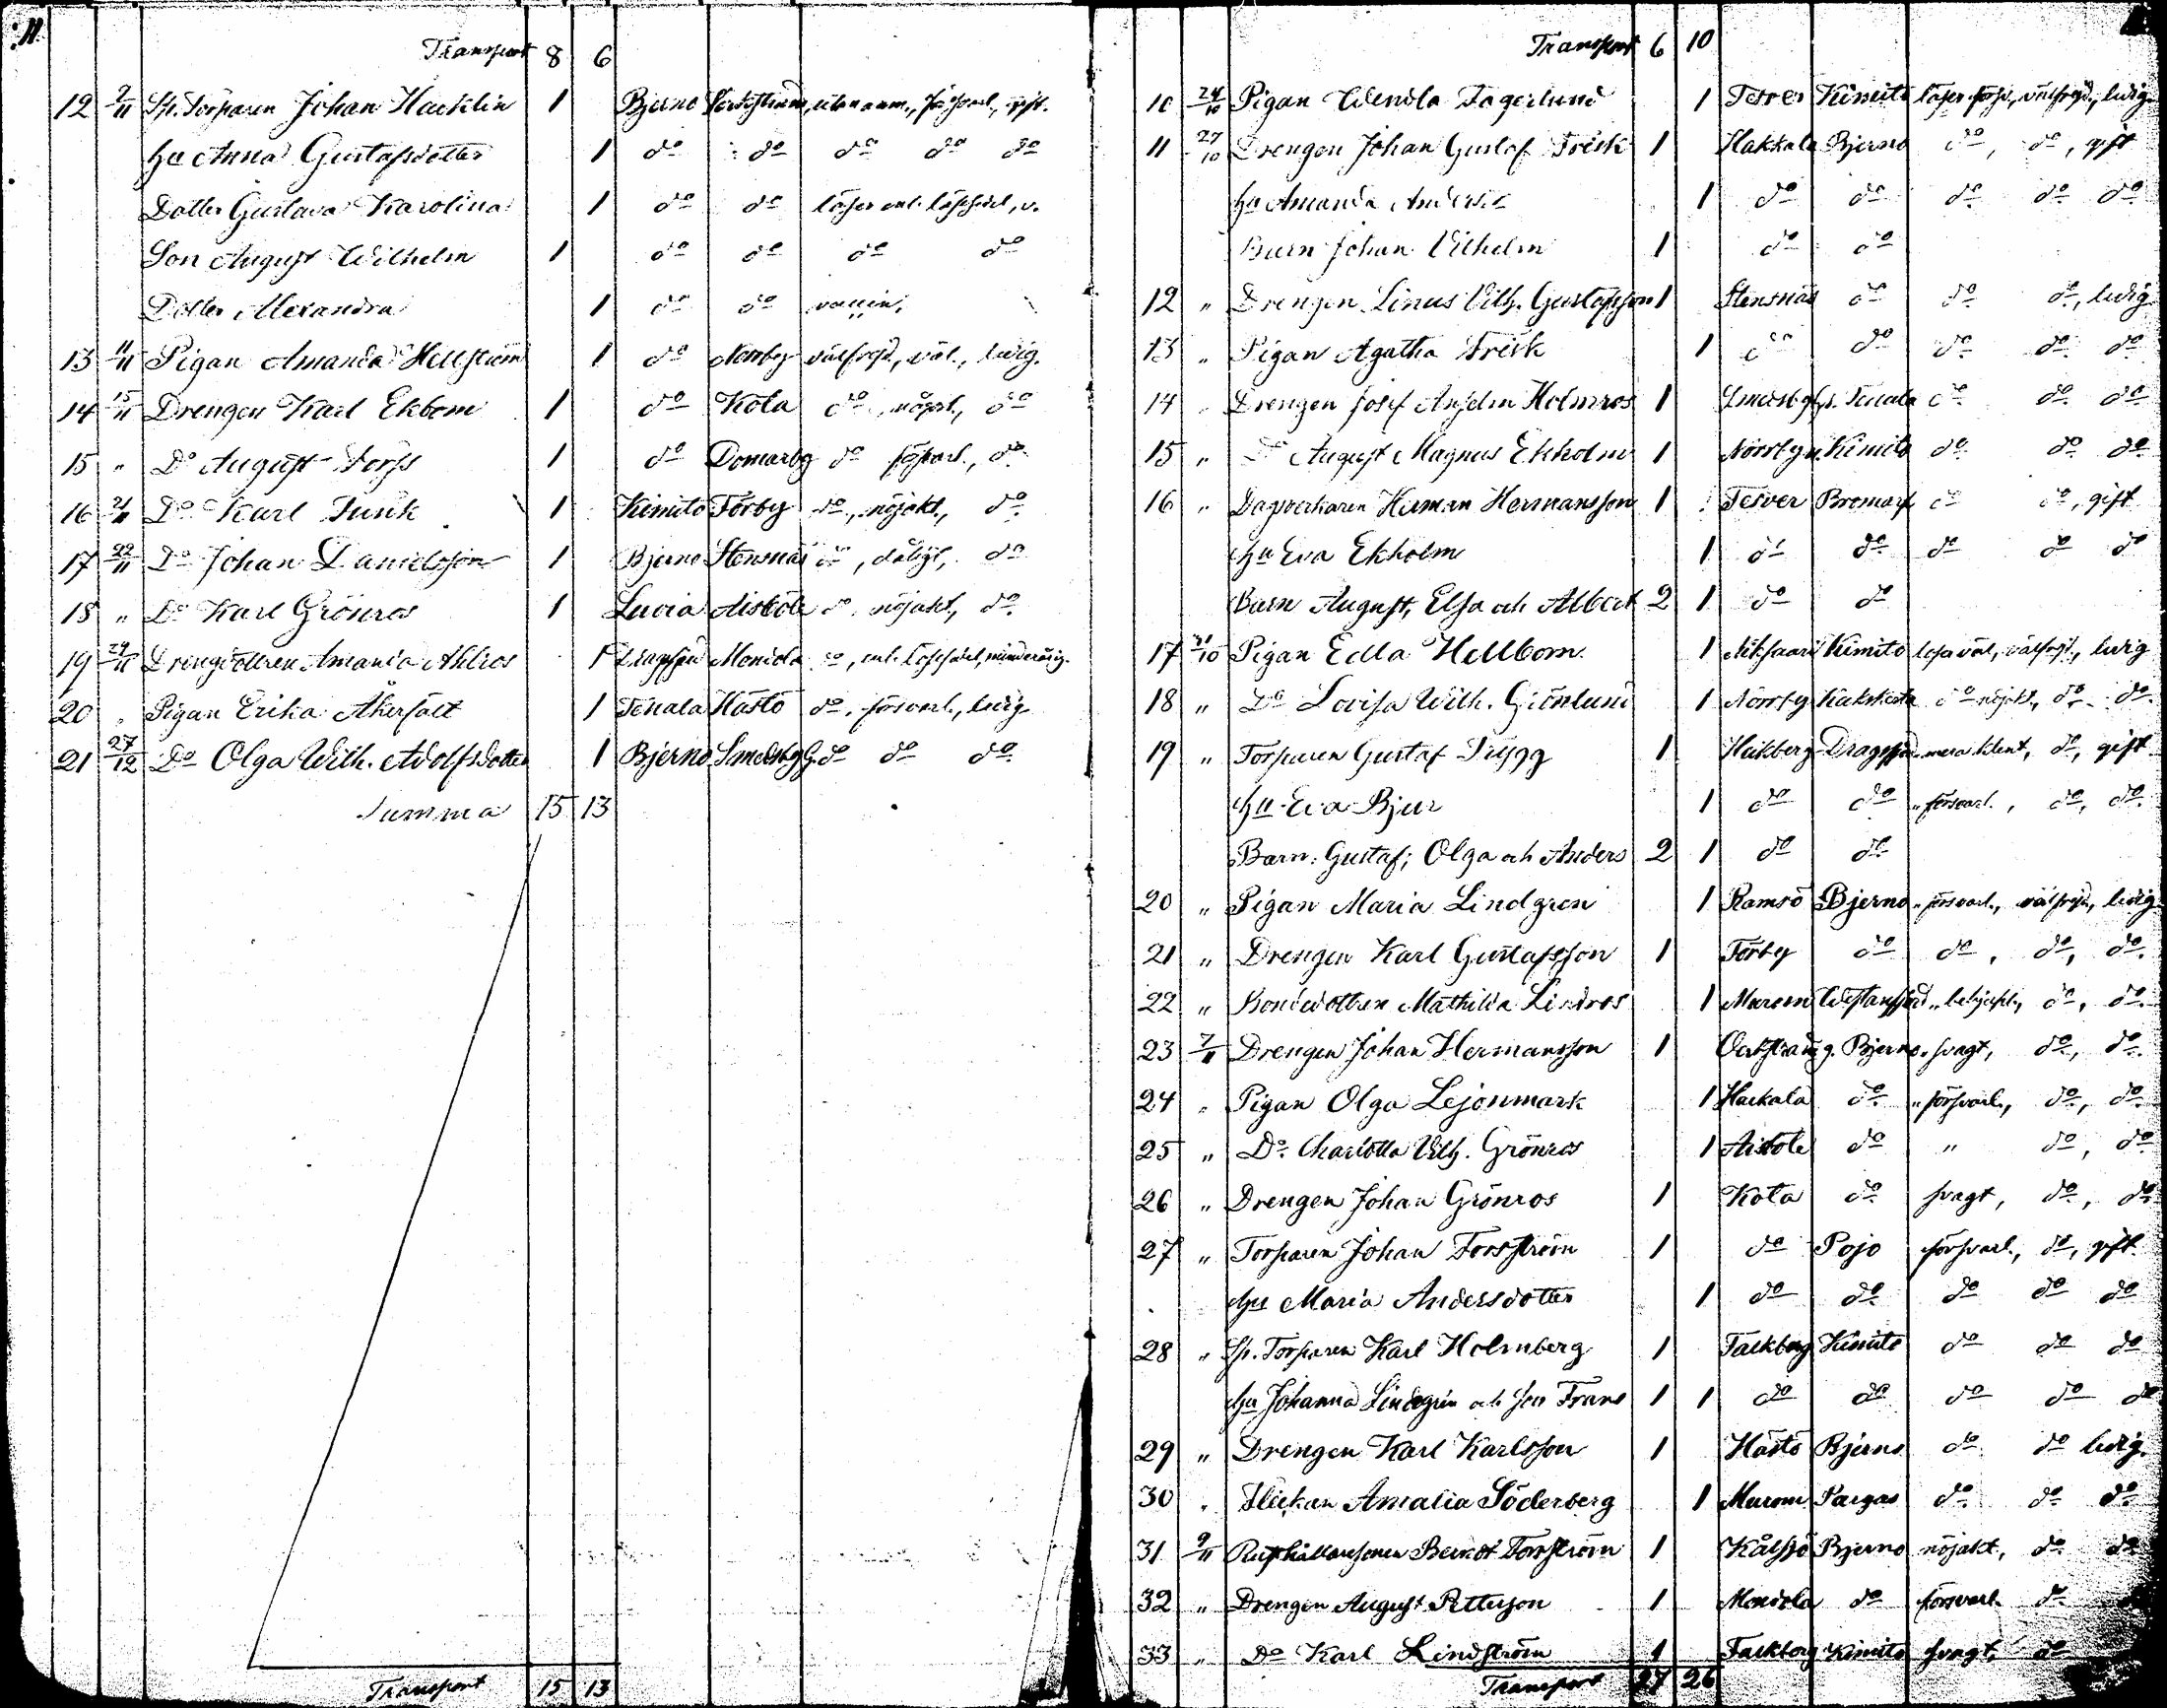 Transport 8 6
12 2/11 Sp. Torparen Johan Hacklin 1 Bjerno utan anm., försvarl., gift.
Hu Anna Gustafsdotter 1 do do do do do
Dotter Gustava Karolina 1 do do läser enl. läsesed., v.
Son August Wilhelm 1 do do do do
Dotter Alexandra 1 do do
13 11/11 Pigan Amanda Hellström 1 do Norrby välfrejd., väl., ledig.
14 15/11 Drengen Karl Ekbom 1 do Kola do, nöjakt., do
15 " Do August Forss 1 do Domarby do försvarl., do
16 21/11 Do Karl Fusik 1 Kimito Förby do, nöjakt., do
17 22/11 Do Johan Danielsson 1 Bjerno Stensnäs do, dåligt, do
18 " Do Karl Grönros 1 Aisböle do, nöjakt, do
19 29/11 Drengdottren Amanda Ahlros 1 Dragsfjerd do, enl. läsesedel, minderårig.
20 " Pigan Erika Åkerfält 1 Tenala Hästö do, försvarl., ledig
21 27/12 Do Olga Wilh. Adolfsdotter 1 Bjerno Smedsby G. do do do
Summa 15 13
Transport 15 13
Transport 6 10
10 24/10 Pigan Wendla Fagerlund 1 Tesver Kimito läser försv., välfrejd., ledig.
11 27/10 Drengen Johan Gustaf Frisk 1 Hakkala Bjerno do, do, gift
Hu Amanda Anders.d. 1 do do do do do
Barn Johan Vilhelm 1 do do
12 " Drengen Linus Vilh. Gustafsson 1 Stensnäs do do do, ledig
13 " Pigan Agatha Frisk 1 do do do do do
14 " Drengen Josef Anselm Holmros 1 Smedsby G. Tenala do do do
15 " Do August Magnus Ekholm 1 Norrbyn Kimito do do do
16 " Dagverkaren Herman Hermansson 1 Tesver Bromarf do do, gift
Hu Eva Ekholm 1 do do do do do
Barn August, Elsa och Albert 2 1 do do
17 31/10 Pigan Edla Hellbom 1 Niksaari Kimito läsa väl, välfrejd., ledig
18 " Do Lovisa Wilh. Grönlund 1 Norrby do nöjakt., do do
19 " Torparen Gustaf Trygg 1 Hakberg Dragsfjerd mera klent, do, gift
Hu Eva Bjur 1 do do " försvarl., do, do
Barn: Gustaf, Olga och Anders 2 1 do do
20 " Pigan Maria Lindgren 1 Ramsö Bjerno " försvarl., välfrejd., ledig
21 " Drengen Karl Gustafsson 1 Förby do do, do, do
22 " Bondedottren Mathilda Lindros 1 Marom Westanfjerd " behjelpl., do, do
23 7/11 Drengen Johan Hermansson 1 Bjerno svagt, do, do
24 " Pigan Olga Lejonmark 1 Hackala do " försvarl., do, do
25 " Do Charlotta Vilh. Grönros 1 Aisböle do " do, do
26 " Drengen Johan Grönros 1 Kota do svagt, do, do
27 " Torparen Johan Forsström 1 do Pojo försvarl., do, gift
Hu Maria Andersdotter 1 do do do do do
28 " Sp. Torparen Karl Holmberg 1 Falkberg Kimito do do do
Hu Johanna Lindgren och son Frans 1 1 do do do do do
29 " Drengen Karl Karlsson 1 Hästö Bjerno do do ledig.
30 " Flickan Amalia Söderberg 1 Marom Pargas do do do
31 9/11 Rusthållaresonen Berndt Forsström 1 Kålsjö Bjerno nöjakt, do do
32 " Drengen August Petterson 1 Mondola do försvarl. do
33 " Do Karl Lindström 1 Falkberg Kimito svagt, do
Transport 27 26